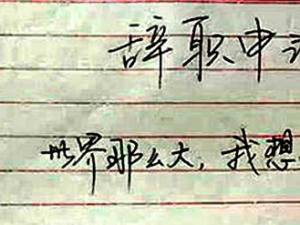 辞职申
世界那么大，我想